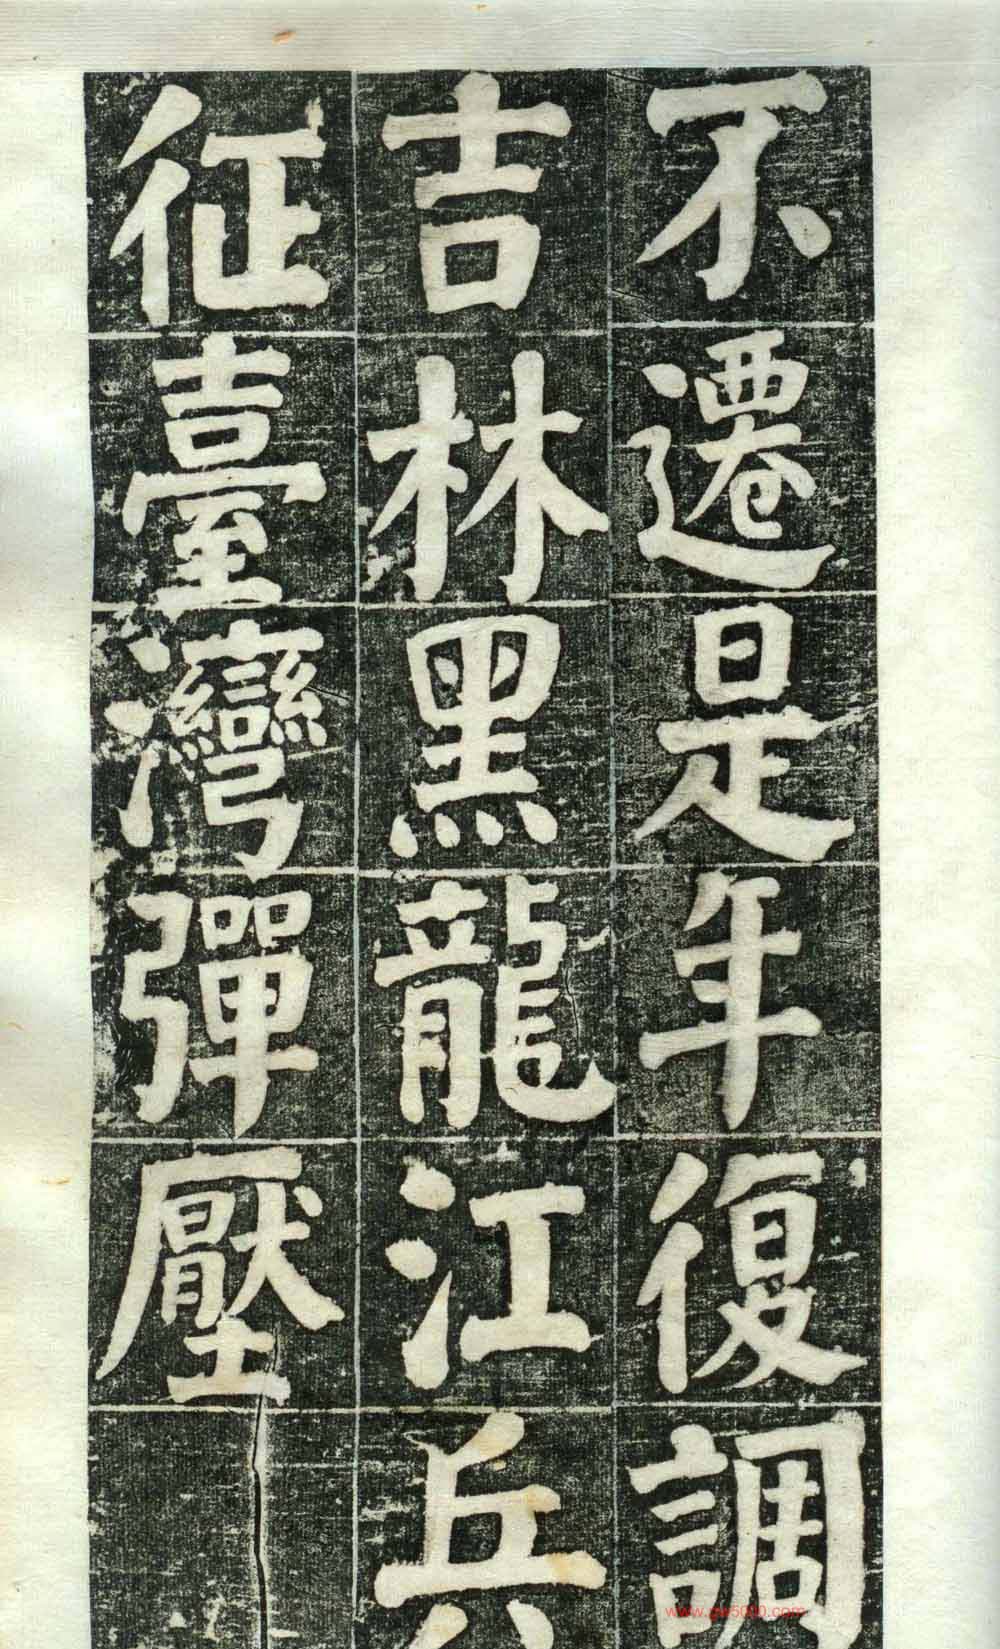 不遷是年復調
吉林黑龍江兵
征臺灣彈壓